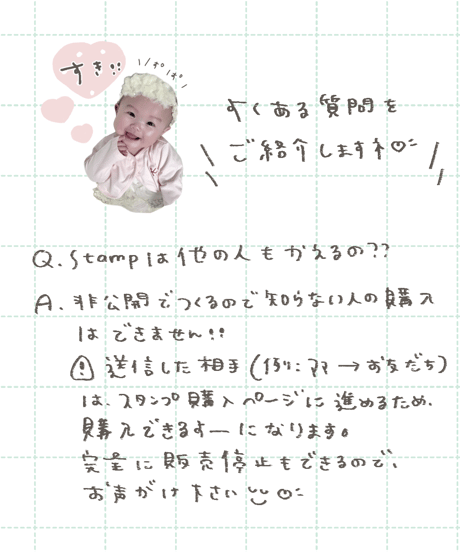 すき!!
ぽぽぽ
よくある質問を
ご紹介しますネ
Q. Stampは他の人もかえるの??
A. 非公開でつくるので知らない人の購入
はできません!!
送信した相手(例:ママ→お友だち)
は、スタンプ購入ページに進めるため、
購入できるよーになります。
完全に販売停止もできるので、
お声がけ下さい